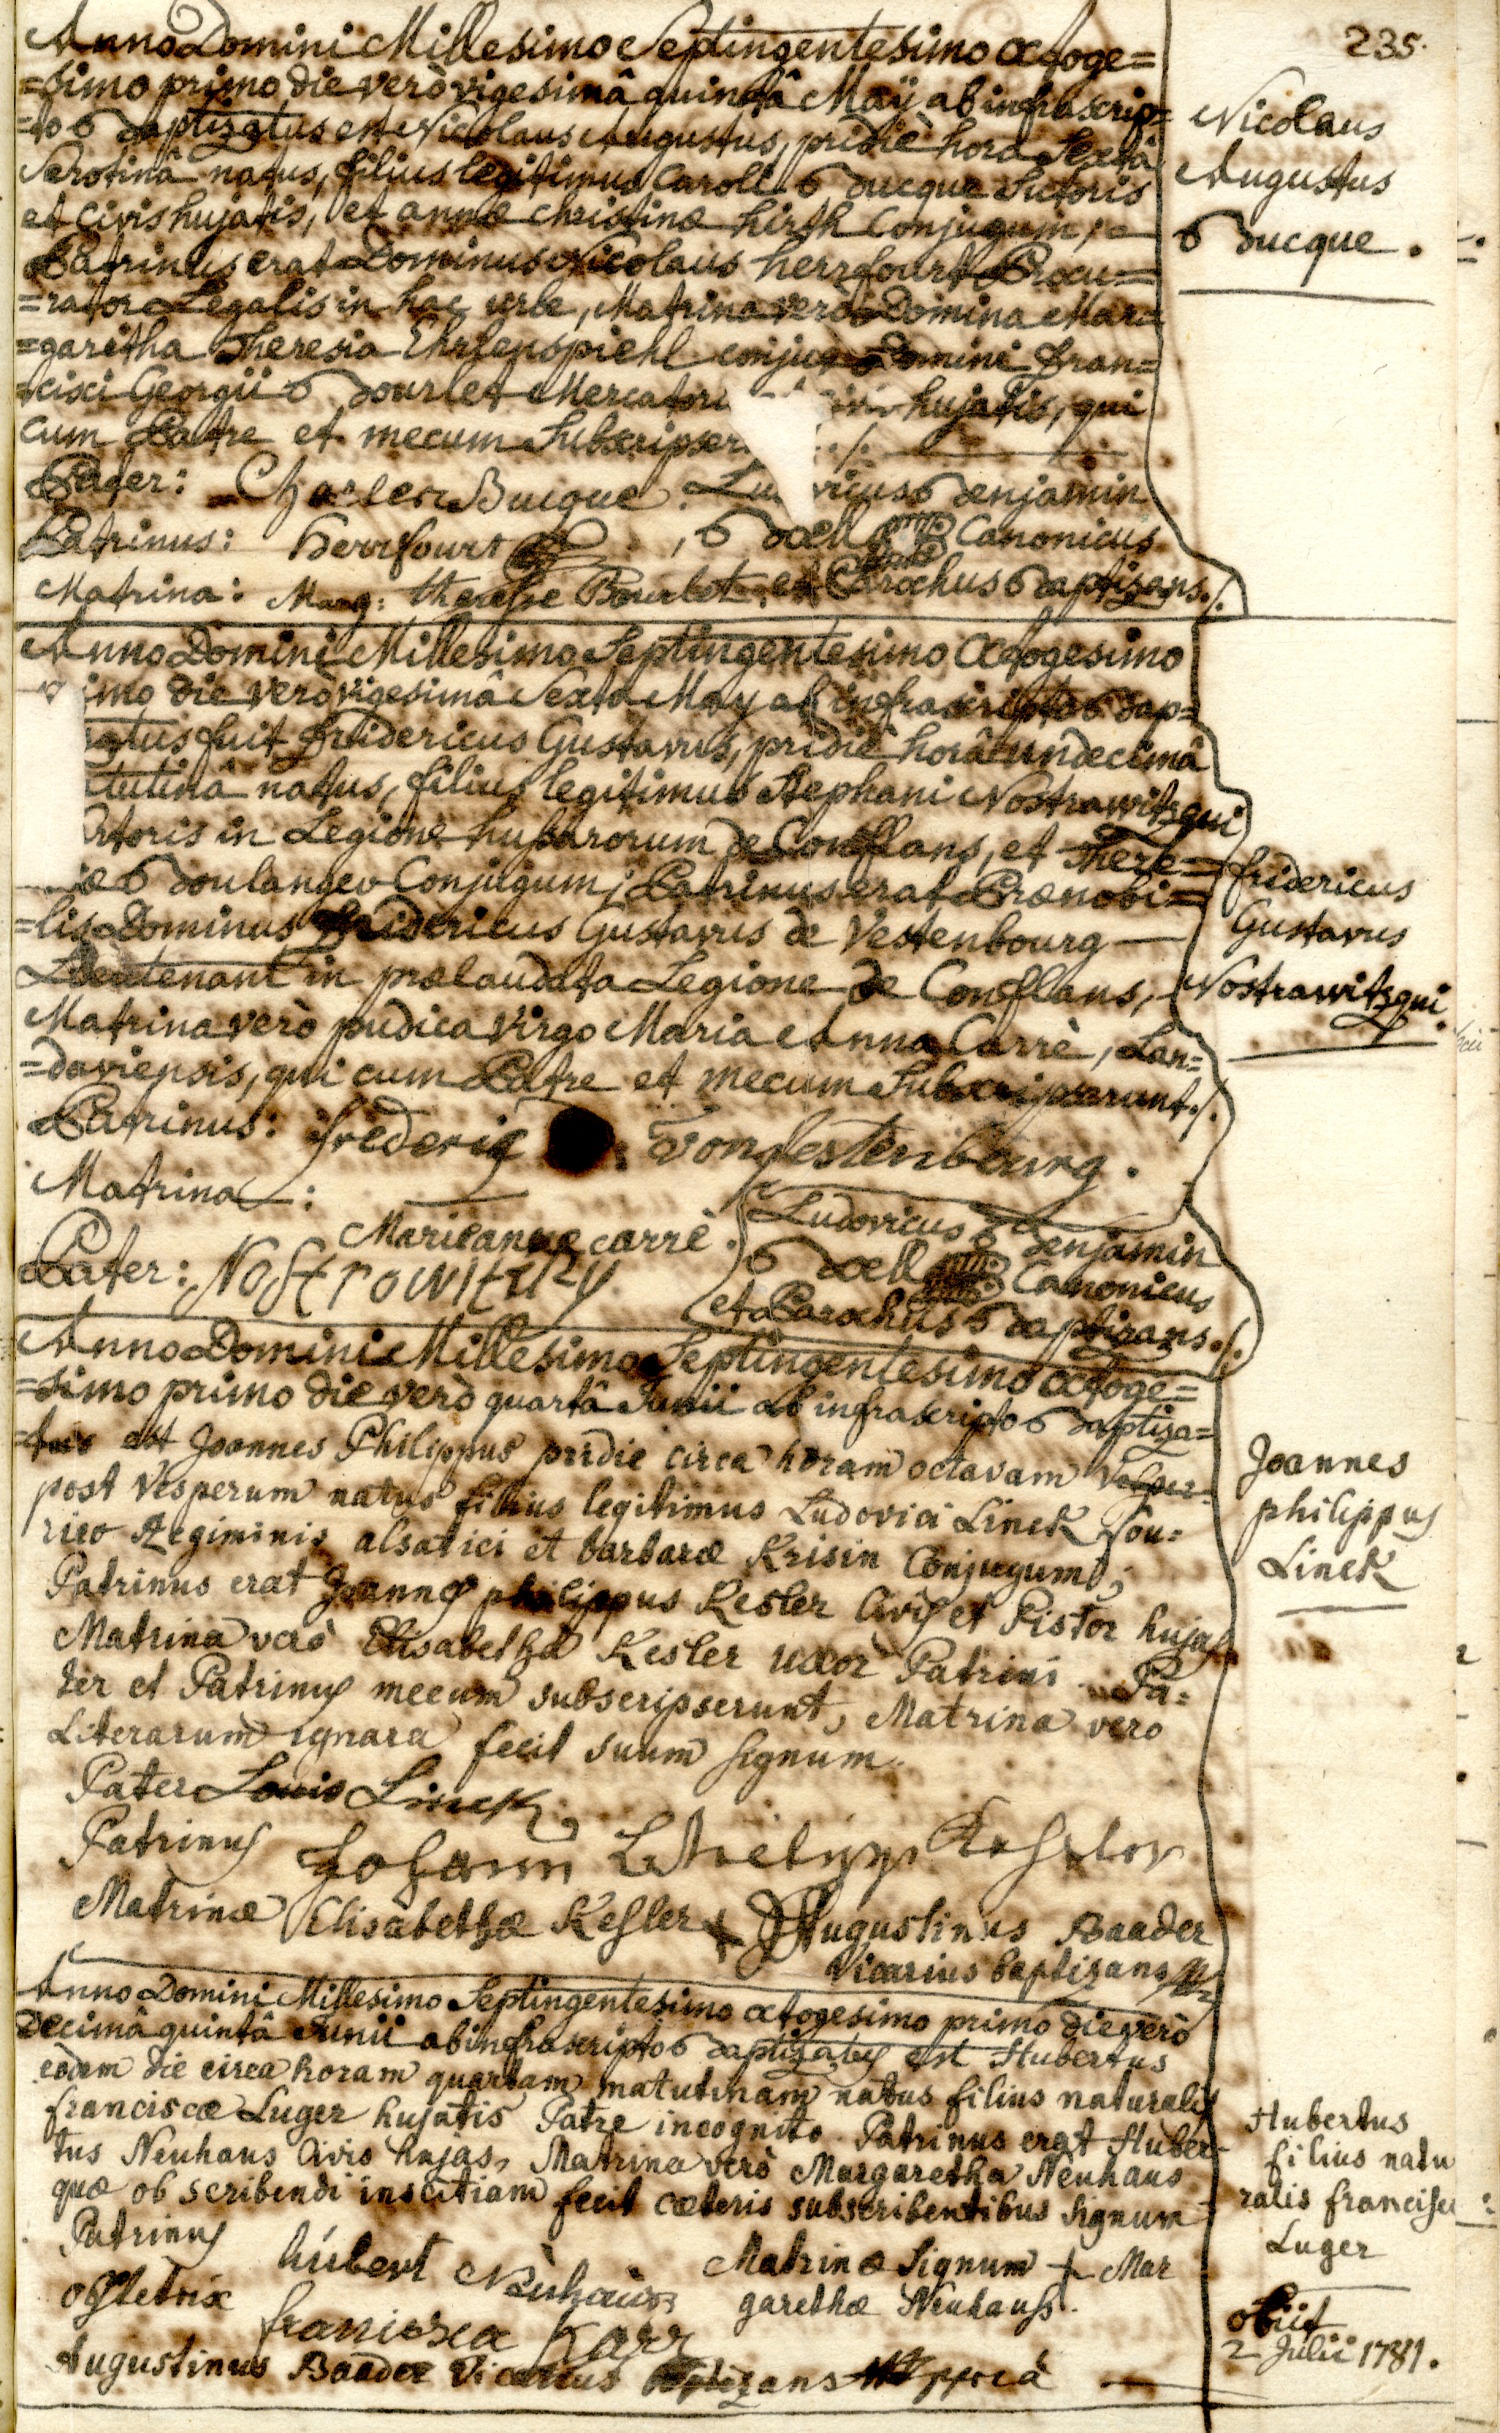 235.
Anno Domini Millesimo Septingentesimo octoge=
=simo primo die verò vigesimâ quintâ Maÿ ab infrascrip=
=to Baptizatus est Nicolaus Augustus, pridiè hora Sextâ
Serotinâ natus, filius legitimus Caroli Bucque Sutoris
et Civis hujatis, et annæ Christinæ hirth Conjugum;
Patrinus erat Dominus Nicolaus herrfourt Procu=
=rator Legalis in hac urbe, Matrina verò Domina Mar=
=garitha Theresia Ehrlenspiehl conjux Domini Fran=
=cisci Georgii Bourlet Mercatori hujatis, qui
cum Patre et mecum Subscripser ./.
Pater: Charles Bucque. Ludovicus Benjamin
Patrinus: herrfourt Böell Canonicus
Matrina: Marg: therese Bourlet. et Parochus Baptizans./.
Nicolaus
Augustus
Bucque.
Anno Domini Millesimo Septingentesimo Octogesimo
imo die verò vigesimâ Sexta May ab infrascripto Bap=
atus fuit Fridericus Gustavus, pridiè horâ undecimâ
tutinâ natus, filius legitimus Stephani Nostrawitzqui
toris in Legione hußarorum de Conflans, et There=
=iæ Boulanger Conjugum; Patrinus erat Prænobi=
=lis Dominus Fridericus Gustavus de Vestenbourg
Lieutenant in prælaudata Legione de Conflans,
Matrina verò pudica virgo Maria Anna Carrè, Lan=
=daviensis, qui cum Patre et mecum Subscripserunt./.
Patrinus: frederig von Vestenbourg.
Matrina:
Marieanne carrè.
Pater: Nostrowitzky
Ludovicus Benjamin
Böell Canonicus
et Parochus Baptizans./.
fridericus
Gustavus
Nostrawitzqui.
Anno Domini Millesimo Septingentesimo octoge=
=simo primo die verò quartâ Junii ab infrascripto Baptiza=
=tus est Joannes Philippus pridie circa horam octavam Vesper
post Vesperum natus filius legitimus Ludovici Linck Fou=
rier Regiminis alsatici et barbaræ Krisin Conjugum;
Patrinus erat Joannes philippus Kesler Civis et Pistor hujas
Matrina verò Elisabetha Kesler uxor Patrini Pa=
ter et Patrinus mecum subscripserunt, Matrina vero
Literarum ignara fecit suum signum.
Pater Louis Linck
Patrinus Johann Philipp Keßler
Matrinæ Elisabethæ Keßler + Augustinus Baader
Vicarius baptizans
Joannes
philippus
Linck
Anno Domini Millesimo Septingentesimo octogesimo primo die verò
Decimâ quintâ Junii ab infrascripto Baptizatus est Hubertus
eodem die circa horam quartam matutinam natus filius naturalis
franciscæ Luger hujatis Patre incognito. Patrinus erat Huber-
tus Neuhaus Civis hujas, Matrina verò Margaretha Neuhaus
quæ ob scribendi inscitiam fecit cæteris subscribentibus signum
Patrinus hübert Neühaus Matrinæ signum + Mar
garethæ Neuhauß.
obstetrix francisca Karr
Augustinus Baader Vicarius Baptizans mppria
Hubertus
filius natu
ralis francisc
Luger
obiit
2 Julii 1781.